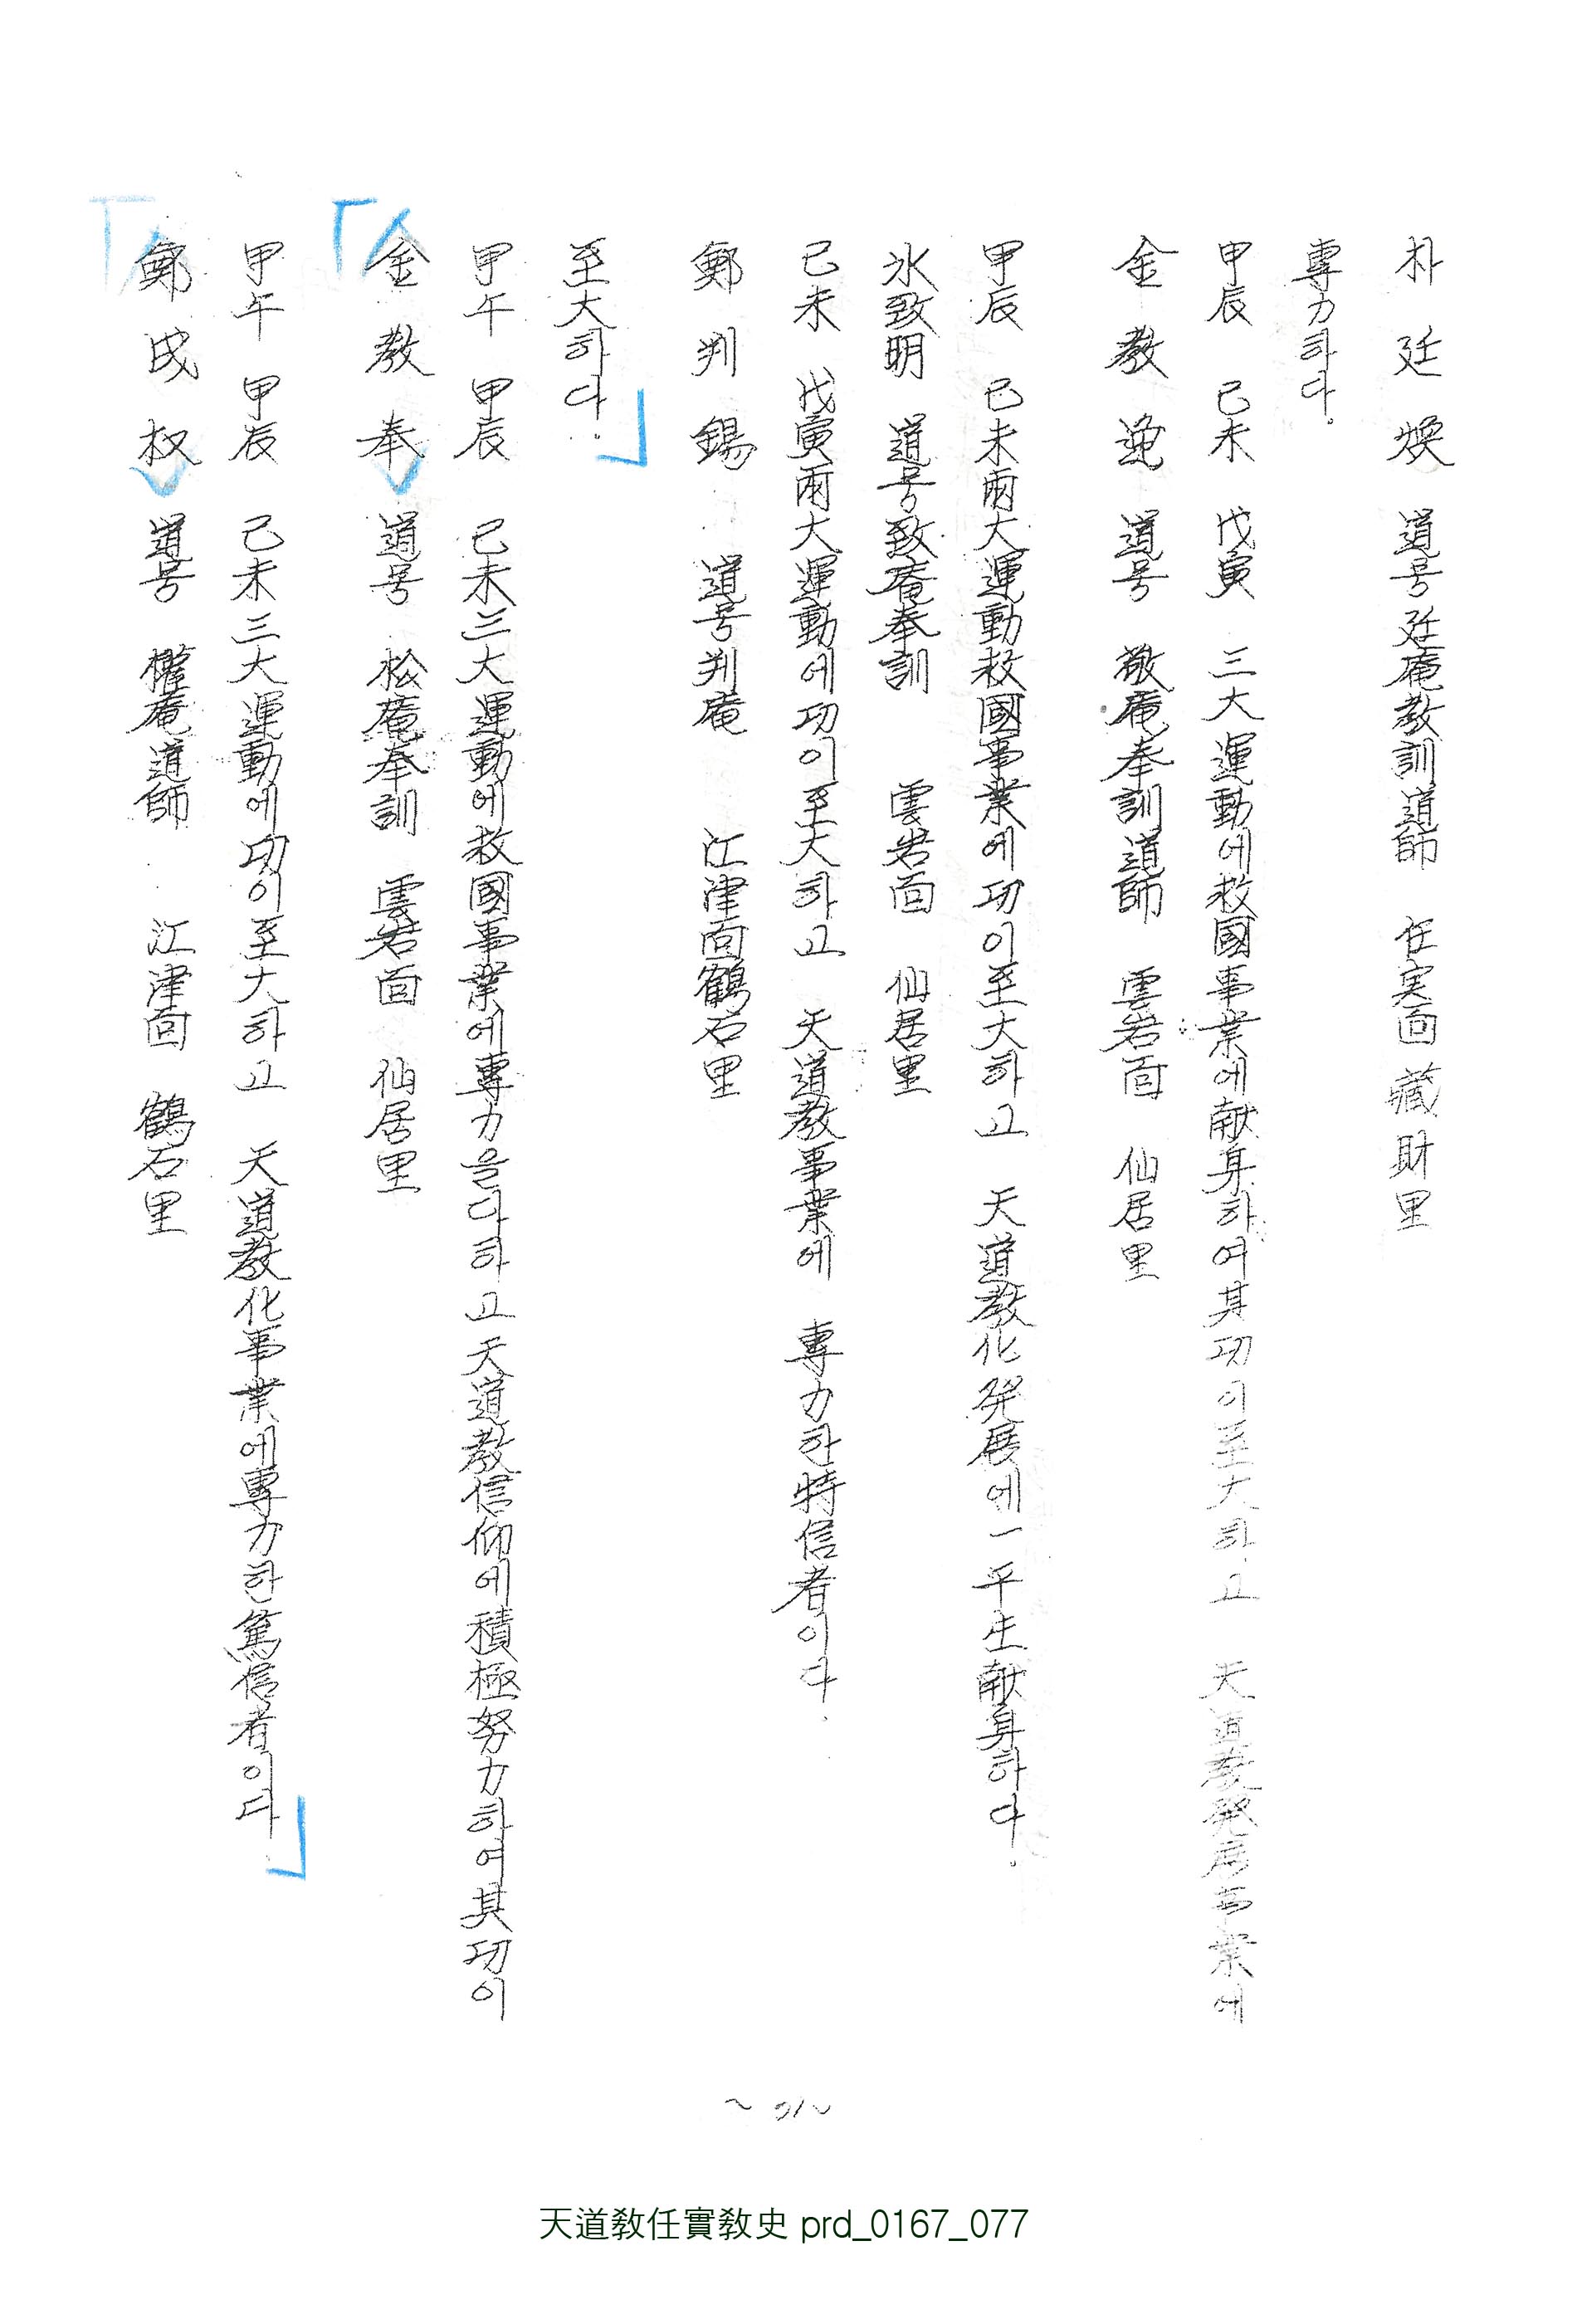 朴廷煥 道号廷菴教訓道師 任実面 藏財里
專力하다.
甲辰 己未 戊寅 三大運動에救國事業에献身하여其功이至大하고 天道教発展事業에
金教逸 道号 敬菴奉訓道師 雲岩面 仙居里
甲辰 己未兩大運動救國事業에功이至大하고 天道教化発展에一平生献身하다.
氷致明 道号致菴奉訓 雲岩面 仙居里
己未 戊寅兩大運動에功이至大하고 天道教事業에 專力한特信者이다.
鄭判錫 道号判菴 江津面鶴石里
至大하다.
甲午 甲辰 己未三大運動에救國事業에專力을다하고天道教信仰에積極努力하여其功이
金教奉 道号 松菴奉訓 雲岩面 仙居里
甲午 甲辰 己未三大運動에功이至大하고 天道教化事業에專力한篤信者이다
鄭成权 道号 權菴道師 江津面 鶴石里
天道敎任實敎史 prd_0167_077